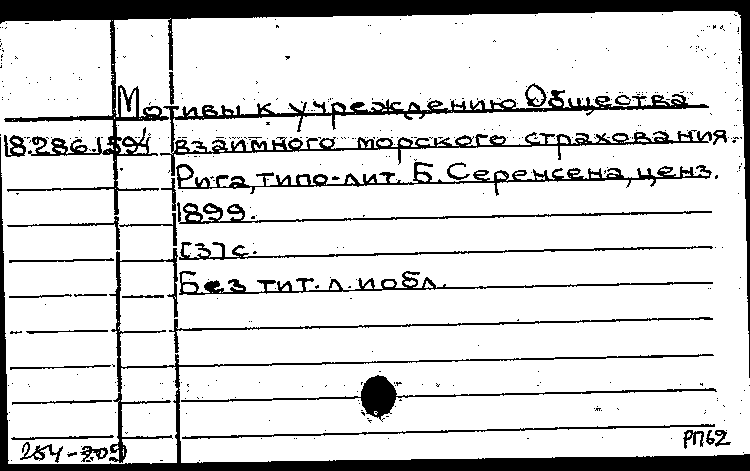 Мотивы к учреждению Общества
18.286.1.594 взаимного морского страхования.
Рига, типо-лит. Б. Серенсена, ценз.
1899.
[3] с.
Без тит. л. и обл.
254-209
РП62